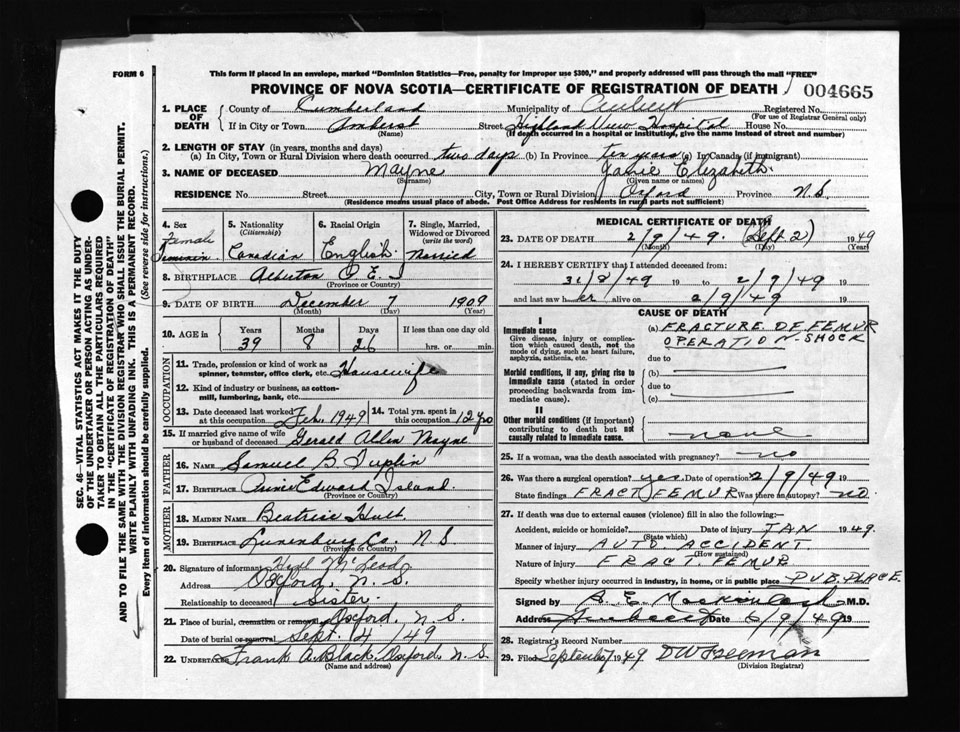 FORM 6
This form if placed in an envelope, marked "Dominion Statistics—Free, penalty for improper use $300," and properly addressed will pass through the mail "FREE"
PROVINCE OF NOVA SCOTIA—CERTIFICATE OF REGISTRATION OF DEATH
004665
1. PLACE OF DEATH
County of Cumberland Municipality of Registered No.
(For use of Registrar General only)
If in City or Town Amherst Street Highland View Hospital House No.
(Name) (If death occurred in a hospital or institution, give the name instead of street and number)
2. LENGTH OF STAY (in years, months and days)
(a) In City, Town or Rural Division where death occurred two days (b) In Province ten years (c) In Canada (if immigrant)
3. NAME OF DECEASED Mayne Janie Elizabeth
(Surname) (Given name or names)
RESIDENCE No. Street City, Town or Rural Division Oxford Province N.S.
(Residence means usual place of abode. Post Office Address for residents in rural parts not sufficient)
4. Sex Female Feminin
5. Nationality (Citizenship) Canadian
6. Racial Origin English
7. Single, Married, Widowed or Divorced (write the word) Married
8. BIRTHPLACE Alberton P.E.I
(Province or Country)
9. DATE OF BIRTH December 7 1909
(Month) (Day) (Year)
10. AGE in Years Months Days If less than one day old
39 8 26 hrs. or min.
OCCUPATION
11. Trade, profession or kind of work as spinner, teamster, office clerk, etc. Housewife
12. Kind of industry or business, as cotton-mill, lumbering, bank, etc.
13. Date deceased last worked at this occupation Feb. 1949 14. Total yrs. spent in this occupation 12 yrs
15. If married give name of wife or husband of deceased Gerald Allen Mayne
FATHER
16. NAME Samuel B. Tuplin
17. BIRTHPLACE Prince Edward Island.
(Province or Country)
MOTHER
18. MAIDEN NAME Beatrice
19. BIRTHPLACE Lunenburg Co. N.S
(Province or Country)
20. Signature of informant McLeod
Address Oxford, N.S.
Relationship to deceased Sister
21. Place of burial, cremation or removal Oxford, N.S.
Date of burial or removal Sept. 4 /49
22. UNDERTAKER Frank A. Black, Oxford, N.S.
(Name and address)
MEDICAL CERTIFICATE OF DEATH
23. DATE OF DEATH 2/9/49. (Sept. 2) 1949
(Month) (Day) (Year)
24. I HEREBY CERTIFY that I attended deceased from:
31/8/49 19 to 2/9/49 19
and last saw her alive on 2/9/49 19
CAUSE OF DEATH
I
Immediate cause
Give disease, injury or complication which caused death, not the mode of dying, such as heart failure, asphyxia, asthenia, etc.
(a) FRACTURE OF FEMUR
OPERATION-SHOCK
due to
Morbid conditions, if any, giving rise to immediate cause (stated in order proceeding backwards from immediate cause).
(b)
due to
(c)
II
Other morbid conditions (if important) contributing to death but not causally related to immediate cause.
none
25. If a woman, was the death associated with pregnancy? no
26. Was there a surgical operation? yes. Date of operation 2/9/49 19
State findings FRACT FEMUR Was there an autopsy? no.
27. If death was due to external causes (violence) fill in also the following:
Accident, suicide or homicide? Date of injury JAN 1949.
(State which)
Manner of injury AUTO ACCIDENT.
(How sustained)
Nature of injury FRACT. FEMUR
Specify whether injury occurred in industry, in home, or in public place PUB. PLACE.
Signed by M.D.
Address Amherst Date 6/9/49 19
28. Registrar's Record Number
29. Filed September 7 1949 D W Freeman
(Division Registrar)
SEC. 46—VITAL STATISTICS ACT MAKES IT THE DUTY
OF THE UNDERTAKER OR PERSON ACTING AS UNDER-
TAKER TO OBTAIN ALL THE PARTICULARS REQUIRED
IN THE "CERTIFICATE OF REGISTRATION OF DEATH"
AND TO FILE THE SAME WITH THE DIVISION REGISTRAR WHO SHALL ISSUE THE BURIAL PERMIT.
WRITE PLAINLY WITH UNFADING INK. THIS IS A PERMANENT RECORD.
Every item of information should be carefully supplied. (See reverse side for instructions.)